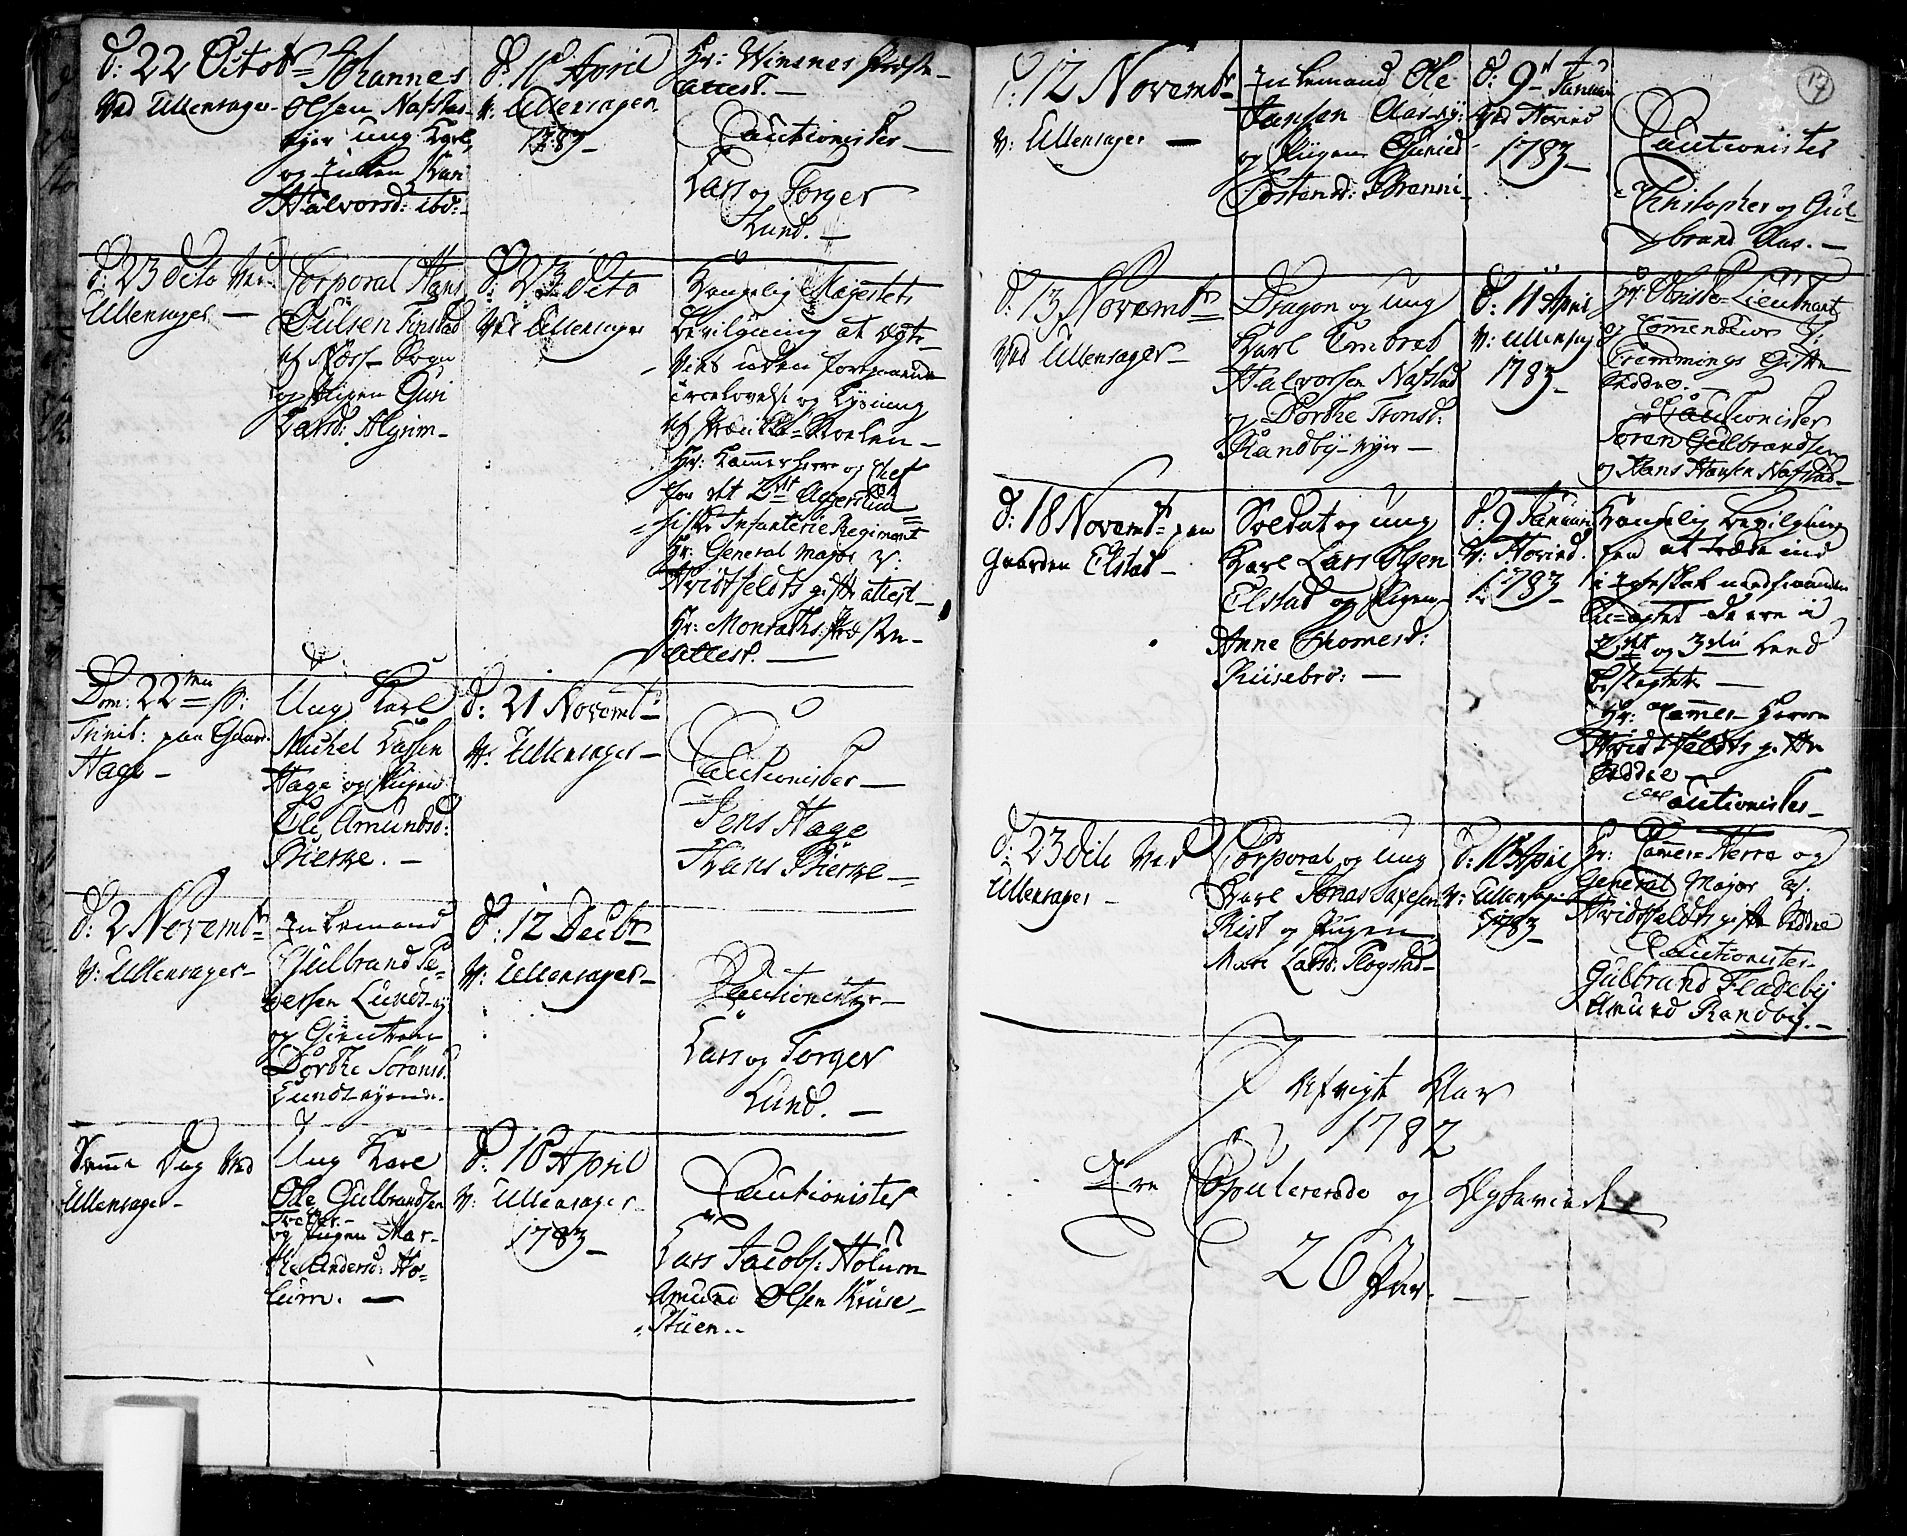 d: 22 Octobr
Ved Ullensager
Johannes
Olsen Nafstad
eyer ung Karl
og Enken Kari
Halvorsd: ibd:
d: 18 April
v: Ullensager
1783
Hr: Winsnes Præste
attest.
Cautionister
Lars og Torger
Lund.
d: 23 dito Ved
Ullensager
Corporal Hans
Poulsen
af Næss Sogn
og Pigen Guri
Larsd: Algrim
d: 23 dito
Ved Ullensager
Kongelig Majestets
bevilgning at egte
vies uden foregaaende
trolovelse og Lysning
af Prædike Stolen
Hr: Kammerherre og Chef
for det 2det Aggershuu
siske Infanterie Regiment
Hr: General Major v:
Hvidtfeldts gifte attest
Hr: Monraths Præste
attest.
Dom: 22 p:
Trinit: paa Gaard
Hage
Ung Karl
Michel Larsen
Hage og Pigen
Eli Amundsd:
Bierke.
d: 21 Novembr
v: Ullensager
Cautionister
Jens Hage
Hans Bierke
d: 2 Novembr
v: Ullensager
Enkemand
Gulbrand Pe-
dersen Lunds-ej
og Gientren
Dorthe Sørensd:
Lunds-ejend.
d: 12 Decbr
v: Ullensager
Cautionister
Lars og Torger
Lund.
Samme Dag Ved
Ullensager
Ung Karl
Ole Gulbrandsen
Tveter
og Pigen Mar-
the Andersd: Ho-
lum.
d: 18 April
v: Ullensager
1783
Cautionister
Lars Jacobs: Holum
Amund Olsen Kruse
Stuen.
17
d: 12 Novembr
v: Ullensager
Enkemand Ole
Hansen Aas-ey:
og Pigen Gunild
Tostensd: Branni
d: 9 Januari
Ved Hovind
1783
Cautionister
Christopher og Gul
brand Aas.
d: 13 Novembr
Ved Ullensager
Dragon og ung
Karl Embret
Halvorsen Nafstad
og Dorthe Tronsd:
Randby-eyer
d: 11 April
v: Ullensag
1783
Hr: Lieutnant
og Commendeur v:
Fremmings Gifte
Seddel.
Cautionister
Soren Gulbrandsen
og Hans Hansen Nafstad
d: 18 Novembr paa
Gaarden Elstad
Soldat og ung
Karl Lars Olsen
Elstad og Pigen
Anne Thomesd:
Kiisebro:
d: 9 Januari
v: Hovind
1783
Kongelig bevilgning
for at træde ind
i Egteskab uandseet
de ere i
2det og 3die Leed
beslægtet
Hr: Cammer Herre
Hvidtfeldts gifte
Seddel
Cautionister
d: 23 dito Ved
Ullensager
Corporal og ung
Karl Jonas
Rist og Pigen
Mari Larsd: Rogstad
d: 18 April
v: Ullensager
1783
Hr: Cammer-Herre og
General Major v:
Hvidtfeldts gifte Seddel
Cautionister
Gulbrand Fladeby
Amund Randby.
I Afvigte Aar
1782
Ere Copulerede og Egteviede
26 Par.